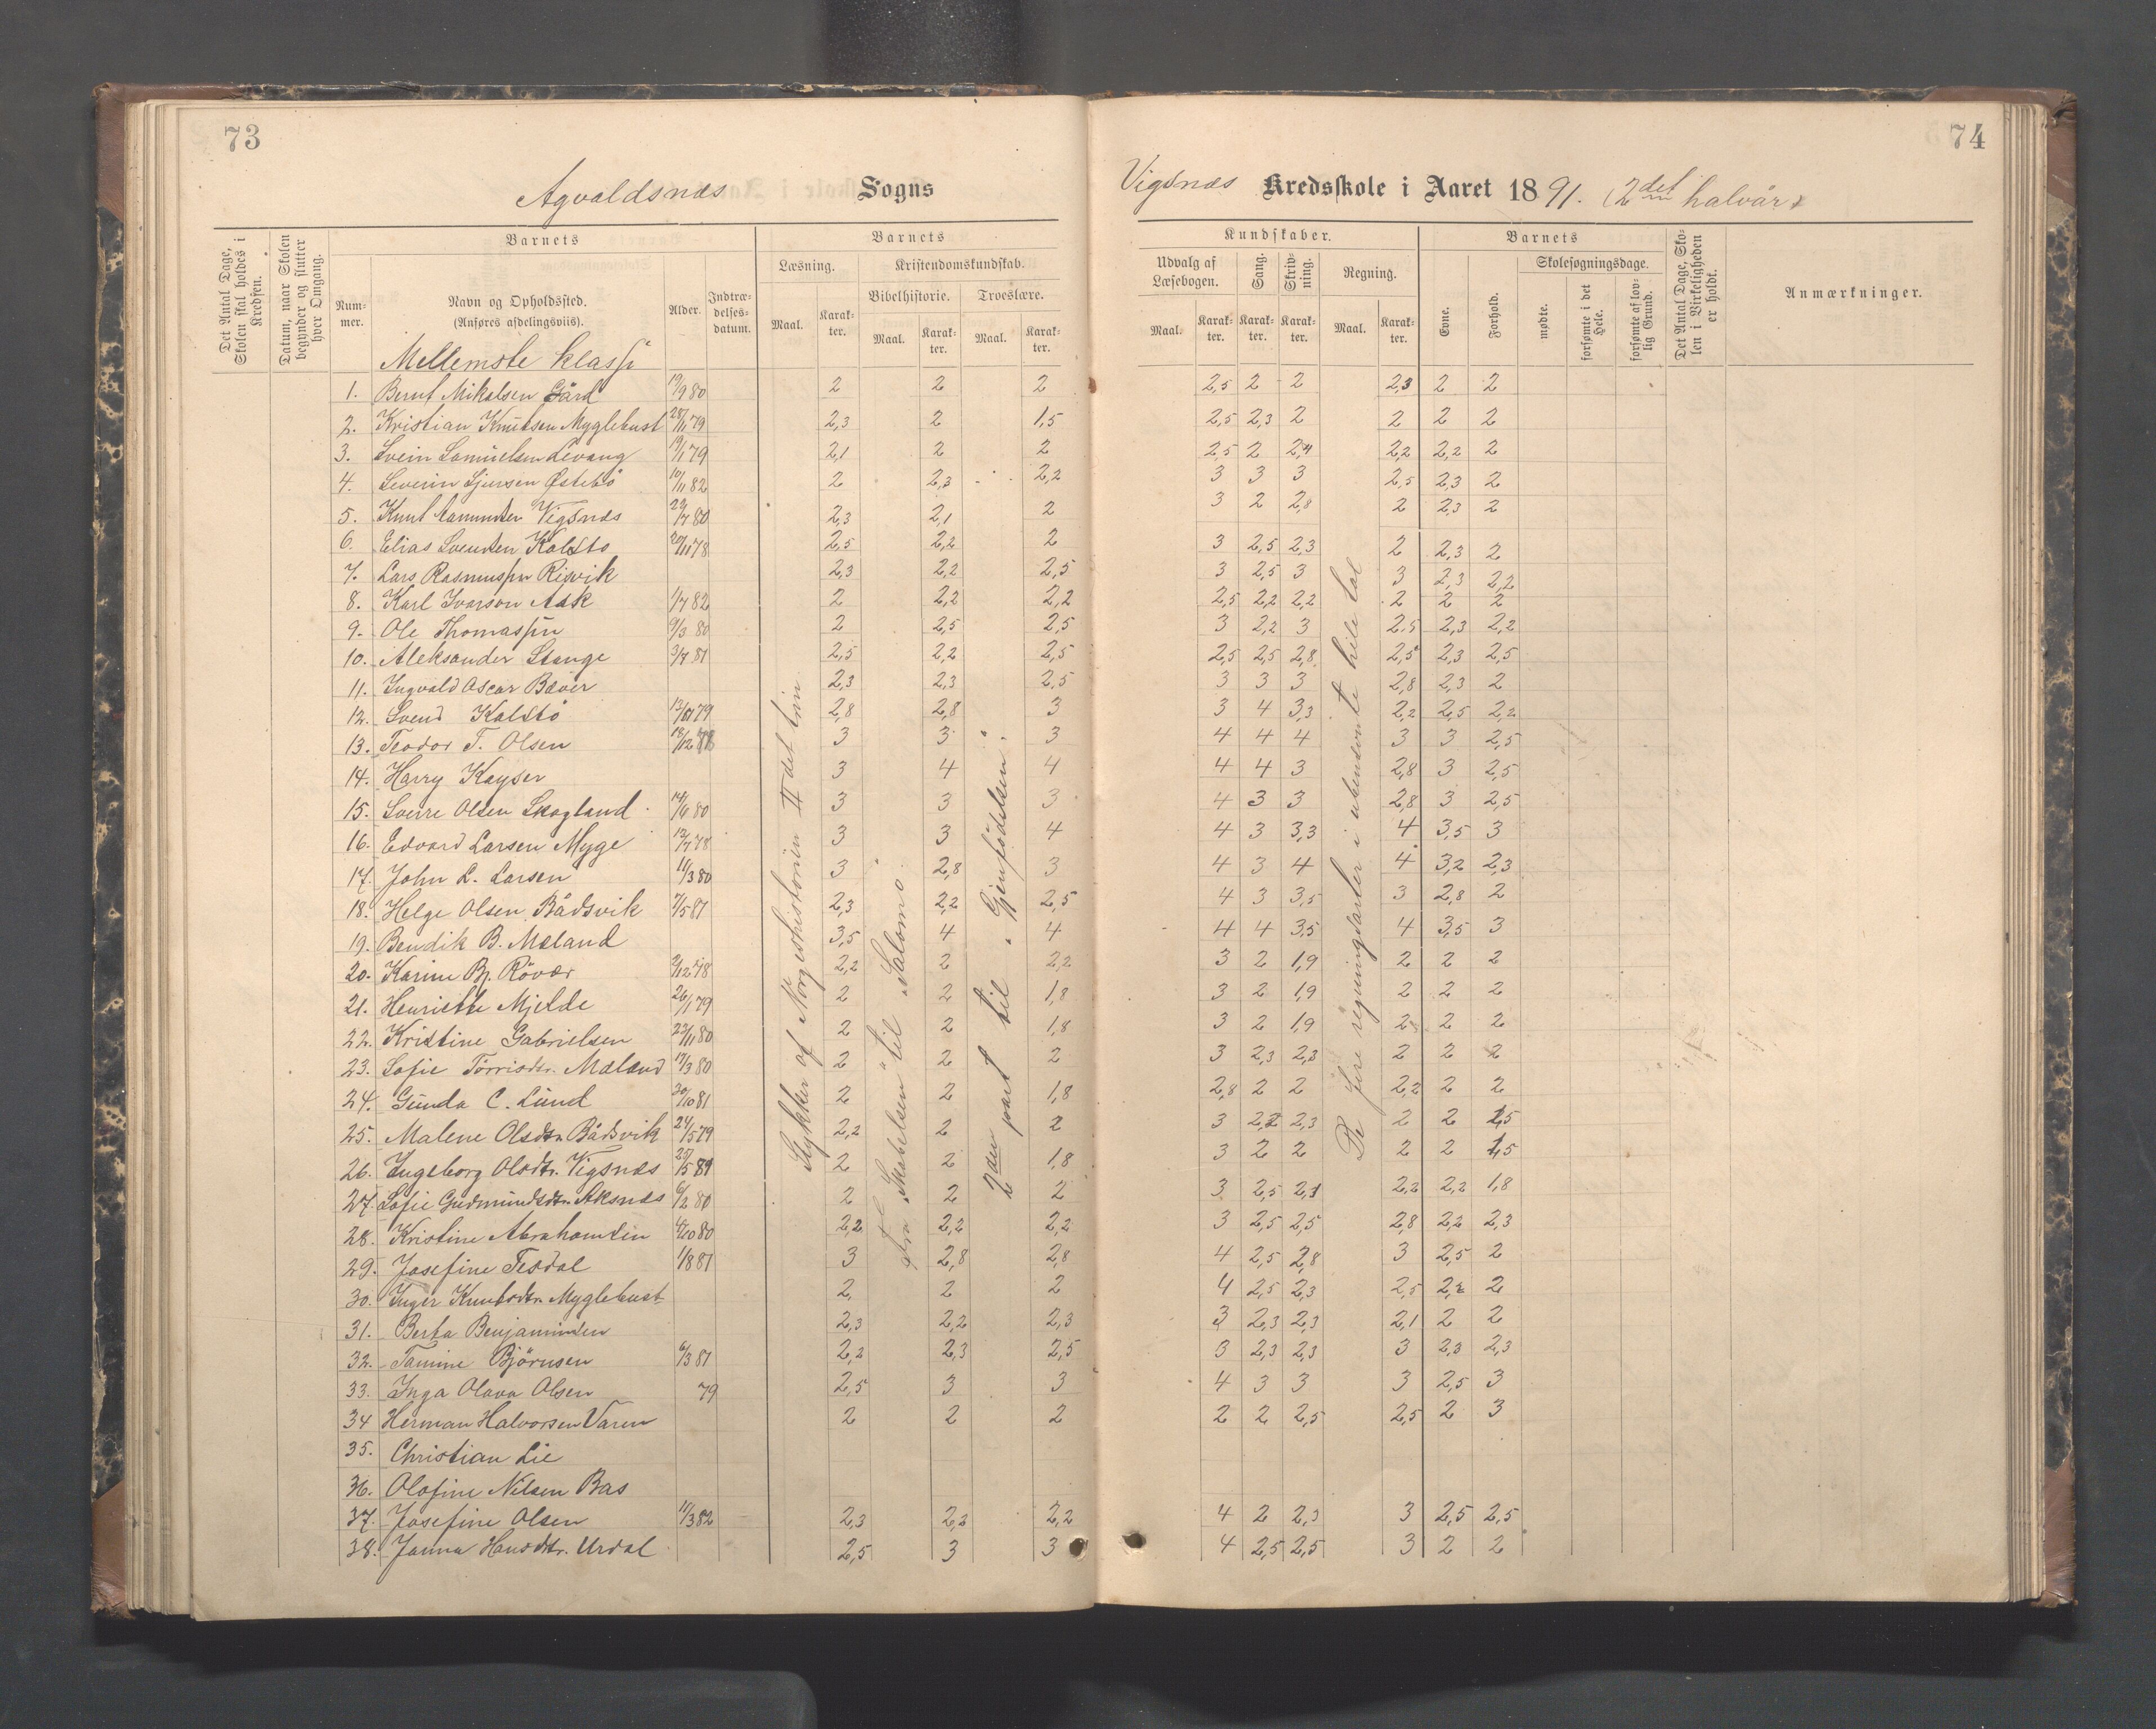 73
74
Agvaldsnæs Sogns
Vigsnæs Kredsskole i Aaret 1891. (2det halvår)
Det Antal Dage, Skolen skal holdes i Kredsen.
Datum, naar Skolen begynder og slutter hver Omgang.
Barnets
Nummer.
Navn og Opholdssted.
(Anføres afdelingsviis).
Alder.
Indtrædelsesdatum.
Barnets
Læsning.
Maal.
Karakter.
Kristendomskundskab.
Bibelhistorie.
Maal.
Karakter.
Troeslære.
Maal.
Karakter.
Kundskaber.
Udvalg af Læsebogen.
Maal.
Karakter.
Sang.
Karakter.
Skrivning.
Karakter.
Regning.
Maal.
Karakter.
Barnets
Evne.
Forhold.
Skolesøgningsdage.
mødte.
forsømte i det Hele.
forsømte af lovlig Grund.
Det Antal Dage, Skolen i Virkeligheden er holdt.
Anmærkninger.
Mellemste klasse
1. Bernt Mikalsen Gård 19/9 80 2 2 2 2,5 2 2 2,3 2 2
2. Kristian Knutsen Myglebust 28/11 79 2,3 2 1,5 2,5 2,3 2 2 2 2
3. Svein Samuelsen Levang 19/1 79 2,1 2 2 2,5 2 2,4 2,2 2,2 2
4. Severin Sjursen Østebö 10/11 82 2 2,3 2,2 3 3 3 2,5 2,3 2
5. Knut Aamunden Vigsnæs 29/7 80 2,3 2,1 2 3 2 2,8 2 2,3 2
6. Elias Svendsen Kalstö 20/11 78 2,5 2,2 2 3 2,5 2,3 2 2,3 2
7. Lars Rasmussen Risvik 2,3 2,2 2,5 3 2,5 3 3 2,3 2,2
8. Karl Ivarson Ask 1/7 82 2 2,2 2,2 2,5 2,2 2,2 2 2 2
9. Ole Thomassen 9/3 80 2 2,5 2,5 3 2,2 3 2,5 2,3 2,2
10. Aleksander Stange 3/7 81 2,5 2,2 2,5 2,5 2,5 2,8 2,5 2,3 2,5
11. Ingvald Oscar Bæver 2,3 2,3 2,5 3 3 3 2,8 2,3 2
12. Svend Kalstö 79 2,8 2,8 3 3 4 3,3 2,2 2,5 2,2
13. Teodor T. Olsen 18/12 78 3 3 3 4 4 4 3 3 2,5
14. Harry Kayser 3 4 4 4 4 3 2,8 3 2,5
15. Sverre Olsen Skogland 14/6 80 3 3 3 4 3 3 2,8 3 2,5
16. Edvard Larsen Myge 12/7 78 3 3 4 4 3 3,3 4 3,5 3
17. John L. Larsen 11/3 80 3 2,8 3 4 3 4 4 3,2 2,3
18. Helge Olsen Bådsvik 7/5 81 2,3 2,2 2,5 4 3 3,5 3 2,8 2
19. Bendik B. Mæland 3,5 4 4 4 4 3,5 4 3,5 3
20. Karine Bj. Rövær 2/12 78 2,2 2 2,2 3 2 1,9 2 2 2
21. Henriette Mjelde 26/1 79 2 2 1,8 3 2 1,9 2 2 2
22. Kristine Gabrielsen 22/11 80 2 2 1,8 3 2 1,9 2 2 2
23. Sofie Törrisdtr. Mæland 17/3 80 2 2 2 3 2,3 2,3 2 2 2
24. Gunda C. Lund 30/10 81 2 2 1,8 2,8 2 2 2,2 2 2
25. Malene Olsdtr. Bådsvik 24/5 79 2,2 2 2 3 2,2 2,3 2 2 1,5
26. Ingeborg Olsdtr. Vigsnæs 25/5 81 2 2 1,8 3 2 2 2 2 1,5
27. Sofie Gudmundsdtr. Aksnæs 6/2 80 2 2 2 3 2,5 2,1 2,2 2,2 1,8
28. Kristine Abrahamsen 4/10 80 2,2 2,2 2,2 3 2,5 2,5 2,8 2,2 2,3
29. Josefine Tesdal 1/8 81 3 2,8 2,8 4 2,5 2,8 3 2,5 2
30. Inger Knutsdtr. Myglebust 2 2 2 4 2,5 2,3 2,5 2,2 2
31. Berta Benjaminsen 2,3 2,2 2,3 3 2,3 2,3 2,1 2 2
32. Tamine Björnsen 6/3 81 2,2 2,3 2,5 3 2,3 2,3 3 2,3 2,3
33. Inga Olava Olsen 79 2,5 3 3 4 3 3 3 2,5 3
34 Herman Halvorsen Våren 2 2 2 2 2 2,5 2,5 2 3
35. Christian Lie
36. Olofine Nilsen Bas
37. Josefine Olsen 11/3 82 2,3 2,3 2,2 4 2 2,3 3 2,5 2,5
38. Janna Hansdtr. Urdal 2,5 3 3 4 2,5 2,5 3 2 2
Stykker af Norgeshistorien II det trin
fra "Skabelsen" til "Salomo"
2den part til "Gjenfödelsen".
De fire regningsarter i ubenævnte hele tal